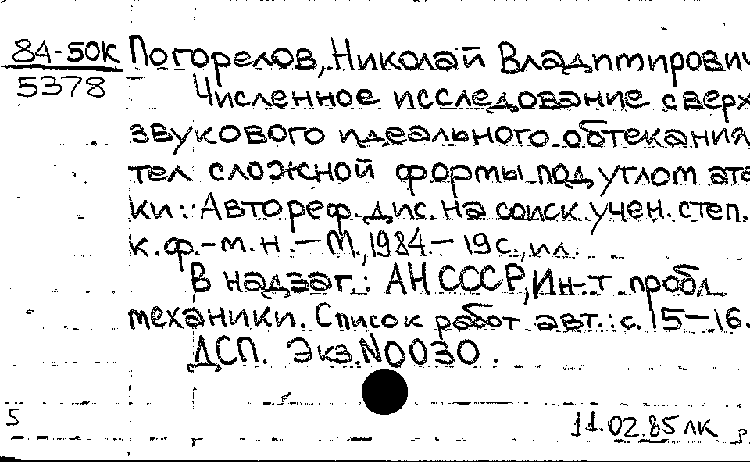 84-50К
5378
Погорелов, Николай Владимирович
Численное исследование сверх
звукового идеального обтекания
тел сложной формы под углом ата
ки: Автореф. дис. на соиск. учен. степ.
к.ф.-м.н. - М., 1984 - 19с., ил.
В надзаг.: АН СССР, Ин-т пробл.
механики. Список работ авт.: с. 15-16.
ДСП. Экз. N0030.
5
11.02.85 лк